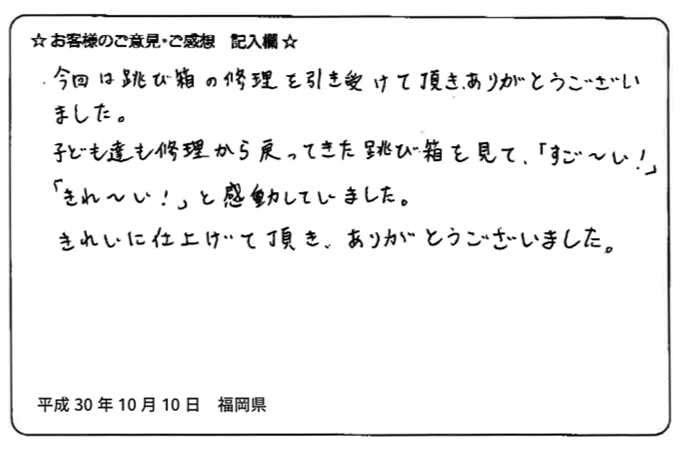 ☆お客様のご意見・ご感想 記入欄☆
今回は跳び箱の修理を引き受けて頂き、ありがとうござい
ました。
子ども達も修理から戻ってきた跳び箱を見て、「すご〜い!」
「きれ〜い!」と感動していました。
きれいに仕上げて頂き、ありがとうございました。
平成30年10月10日 福岡県